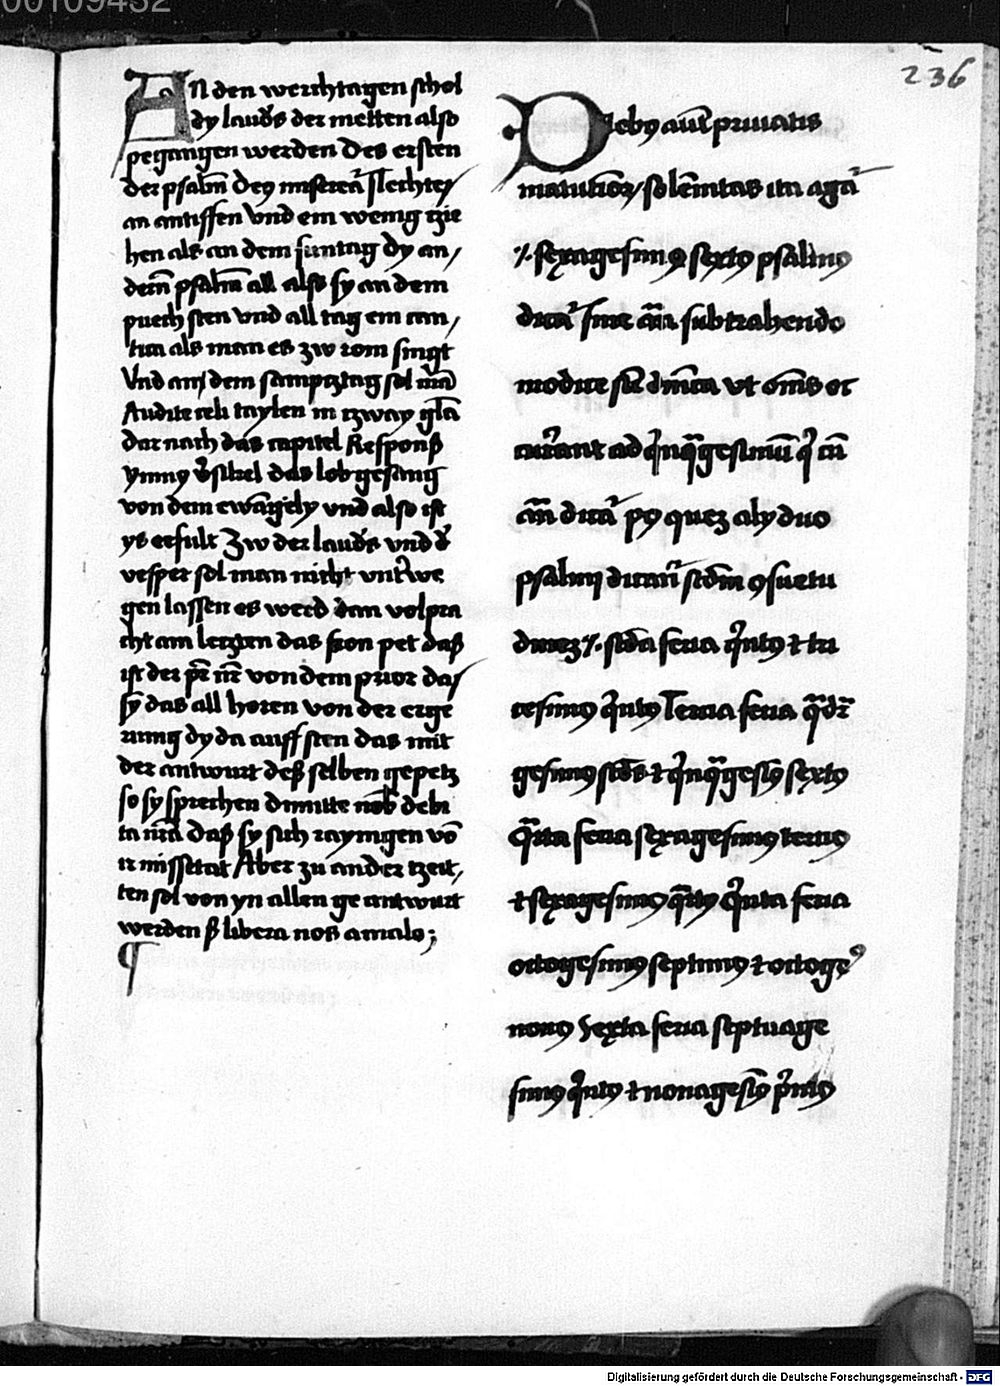 00109432
236
An den werchtagen schol
dy laud's der metten also
pegangen werden Des ersten
der psalm̄ Deq miserea' slechte/
an antiffen vnd ein wenig tzie
hen als an dem suntag dy an/
dern̄ psalm̄ all also sy an dem
puech sten vnd all tag ein can/
tica als man es zw rom singt
Vnd an dem samptztag sol mā
Audite celi taylen in tzway glā
dar nach das capitel Respons
ymny v'sikel das lobgesang
von dem ewāgely vnd also ist
ys erfult Zw der laud's vnd d'
vesper sol man nicht vnt'we
gen lassen es werd dan volpra
cht am letzten das fron pet daß
ist der pr̄ nr̄ von dem prior das
sy das all horen von der erge
rung dy da auff sten das mit
der antwurt deß selben gepetz
so sy sprechen dimitte nob' debi
ta nr̄a daß sy sich raynigen vō
ir missetat Aber zu ander tzeit/
ten sol von yn allen ge antwurt
werden ß libera nos a malo;
¶
Dieby aūt priuatis
matutinoꝝ solēnitas ita aga'
.i. sexagesimꝯ sextꝯ psalmꝯ
dica' sine an̄a subtrahendo
modice sic̄ dn̄ica vt om̄s oc
curant ad q'nqȝgesimū q' cū
an̄a dica' pꝯ quez aly duo
psalmi dicant' scd̄m ꝯsuetu
dinez .i. scd̄a feria q'ntꝯ ⁊ tri
cesimꝯ q'ntꝯ Tercia feria q̄dr̄
gesimꝯ scd̄s ⁊ q'nqȝgesiꝯ sextꝯ
Q̄rta feria sexagesimꝯ terciꝯ
⁊ sexagesimꝯ q̄rtꝯ Q'nta feria
octogesimꝯ septimꝯ ⁊ octoge'
nonꝯ Sexta feria septuage
simꝯ q'ntꝯ ⁊ nonagesiꝯ p'mꝯ
Digitalisierung gefördert durch die Deutsche Forschungsgemeinschaft - DFG